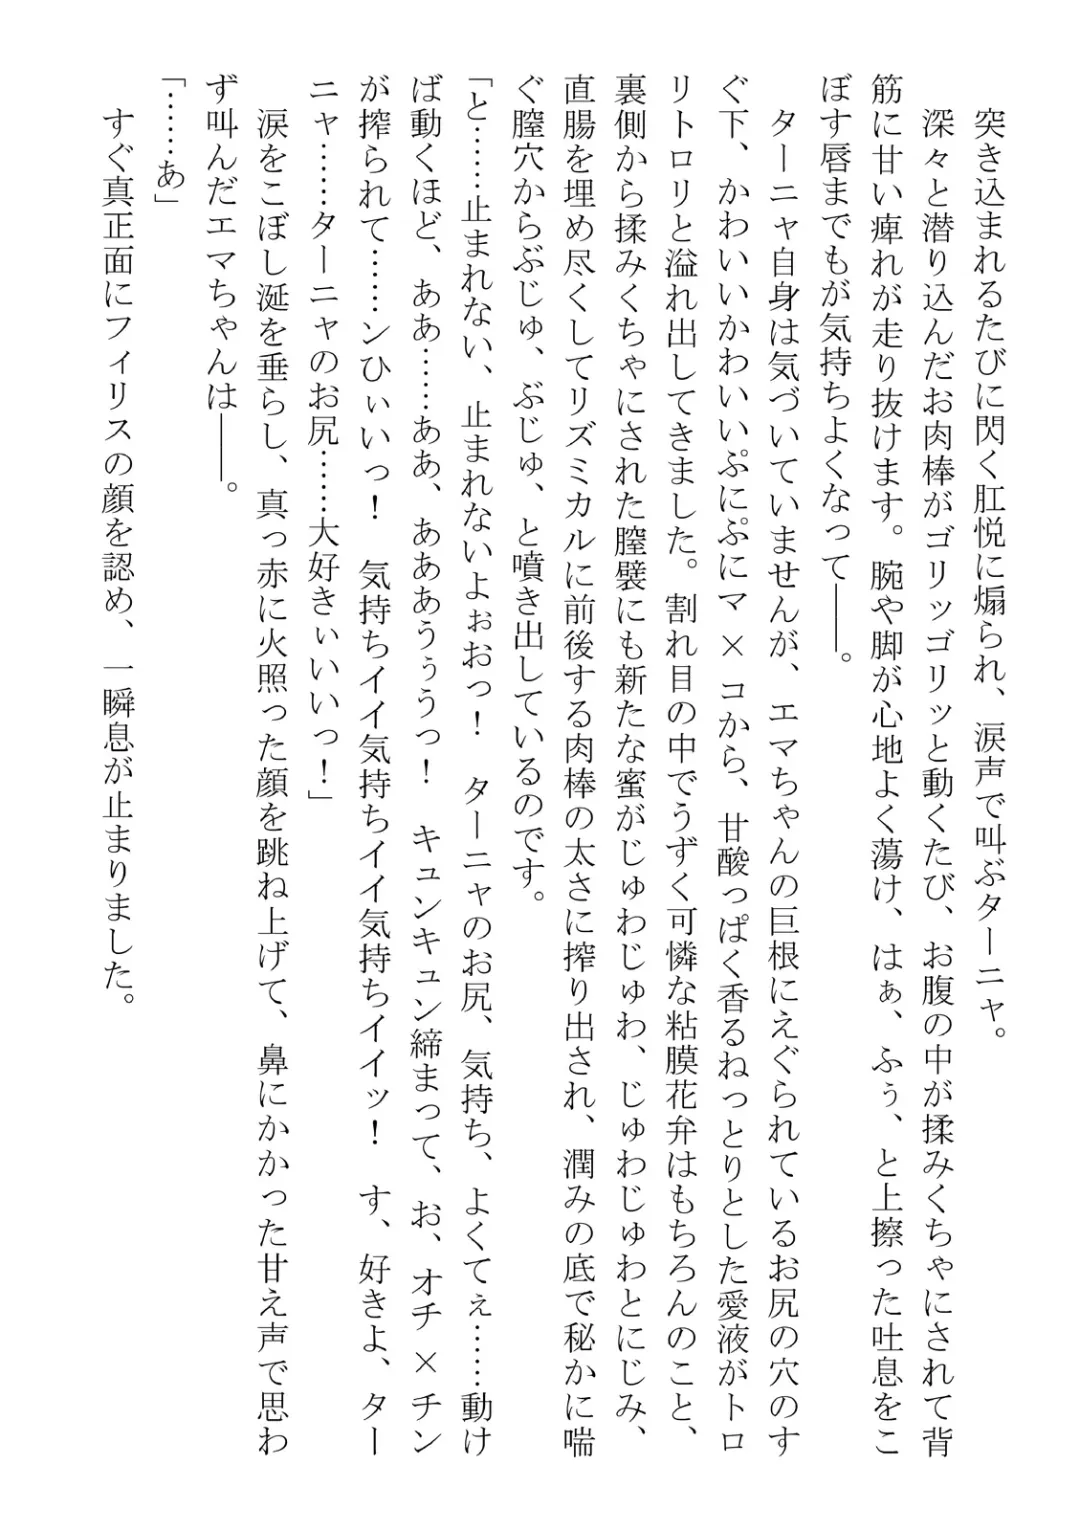 突き込まれるたびに閃く肛悦に煽られ、涙声で叫ぶターニャ。
深々と潜り込んだお肉棒がゴリッゴリッと動くたび、お腹の中が揉みくちゃにされて背
筋に甘い痺れが走り抜けます。腕や脚が心地よく蕩け、はぁ、ふぅ、と上擦った吐息をこ
ぼす唇までもが気持ちよくなって――。
ターニャ自身は気づいていませんが、エマちゃんの巨根にえぐられているお尻の穴のす
ぐ下、かわいいかわいいぷにぷにマ×コから、甘酸っぱく香るねっとりとした愛液がトロ
リトロリと溢れ出してきました。割れ目の中でうずく可憐な粘膜花弁はもちろんのこと、
裏側から揉みくちゃにされた膣襞にも新たな蜜がじゅわじゅわ、じゅわじゅわとにじみ、
直腸を埋め尽くしてリズミカルに前後する肉棒の太さに搾り出され、潤みの底で秘かに喘
ぐ膣穴からぶじゅ、ぶじゅ、と噴き出しているのです。
「と……止まれない、止まれないよぉおっ！　ターニャのお尻、気持ち、よくてぇ……動け
ば動くほど、ああ……ああ、あああうぅうっ！　キュンキュン締まって、お、オチ×チン
が搾られて……ンひぃいっ！　気持ちイイ気持ちイイ気持ちイイッ！　す、好きよ、ター
ニャ……ターニャのお尻……大好きぃいいっ！」
涙をこぼし涎を垂らし、真っ赤に火照った顔を跳ね上げて、鼻にかかった甘え声で思わ
ず叫んだエマちゃんは――。
「……あ」
すぐ真正面にフィリスの顔を認め、一瞬息が止まりました。